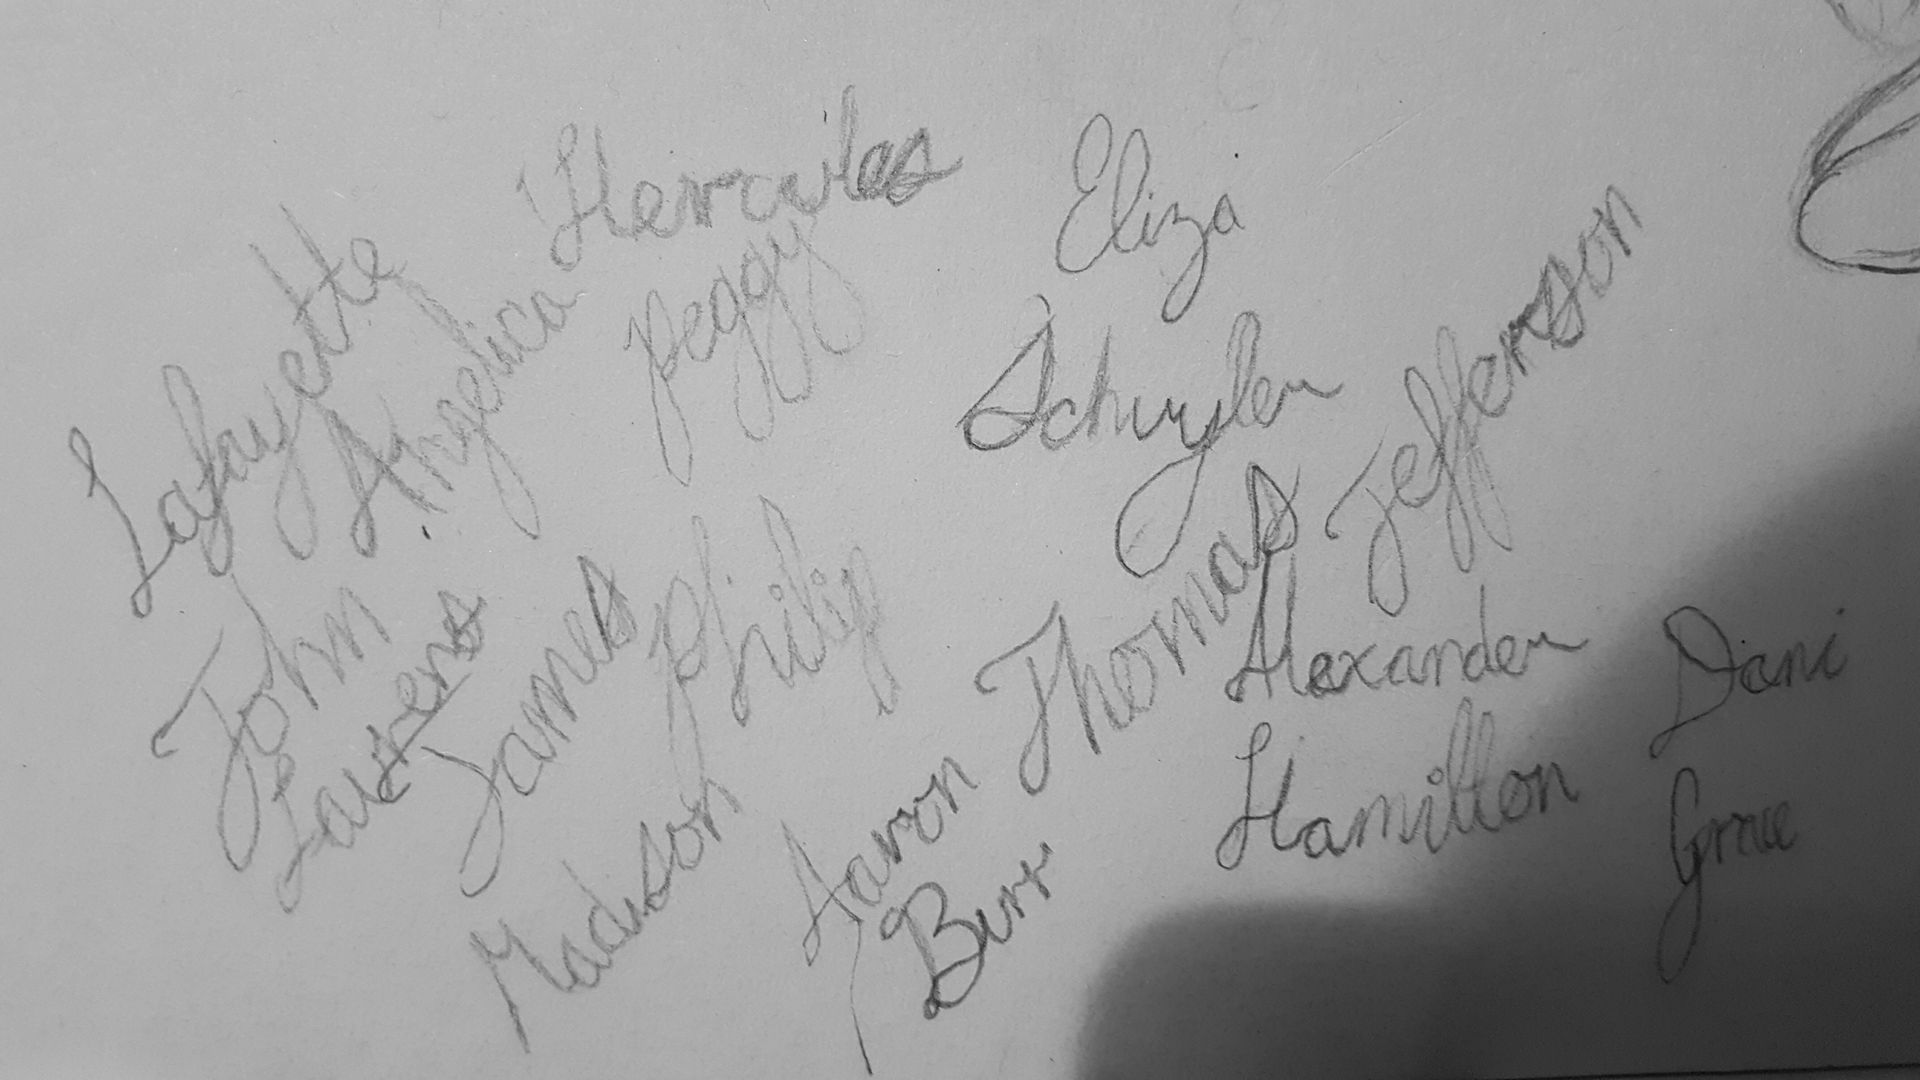 Lafayette
Hercules
Eliza
Angelica
Peggy
Schuyler
Thomas Jefferson
John
Laurens
James
Madison
Philip
Aaron
Burr
Alexander
Hamilton
Dani